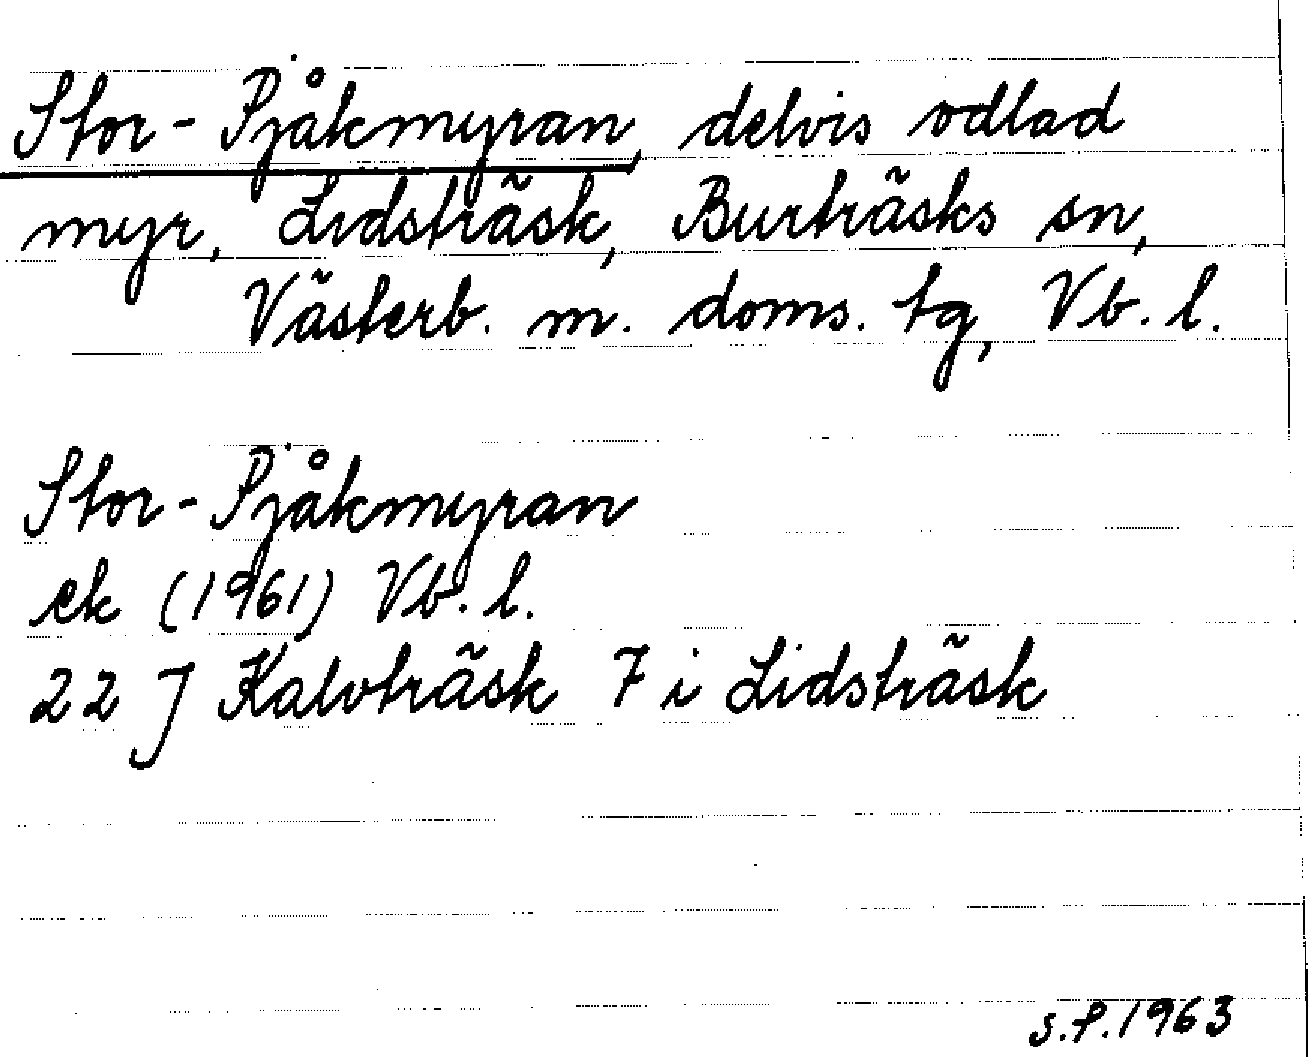 Stor-Pjåkmyran, delvis odlad
myr, Lidsträsk, Burträsks sn,
Västerb. m. doms. tg, Vb. l.
Stor-Pjåkmyran
ek (1961) Vb. l.
22 J Kalvträsk 7 i Lidsträsk
S.P. 1963